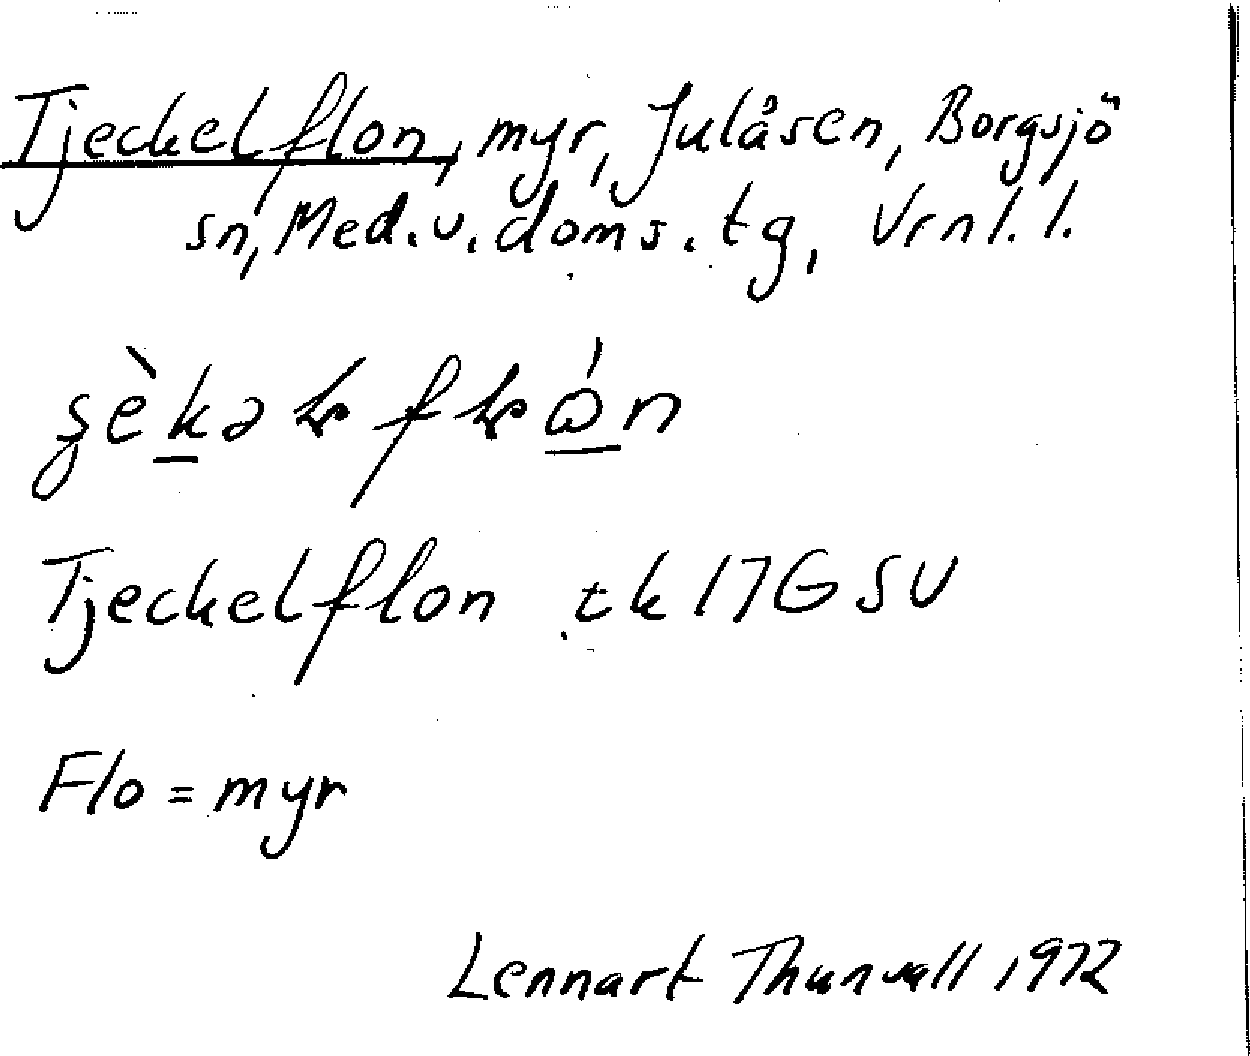 Tjeckelflon, myr, Julåsen, Borgsjö
sn, Med. v. doms. tg, Vrnl. l.
Tjeckelflon tk 17G SV
Flo = myr
Lennart Thunvall 1972